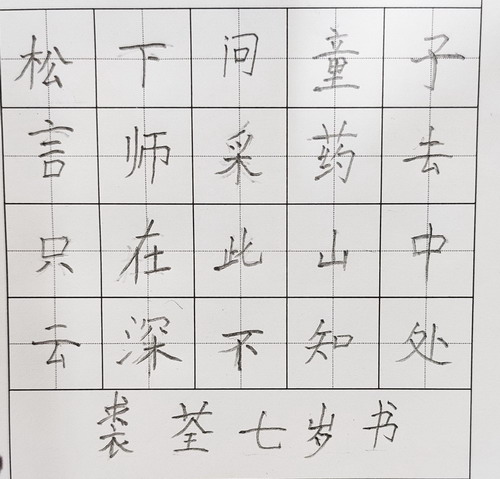 松下问童子
言师采药去
只在此山中
云深不知处
裘荃七岁书